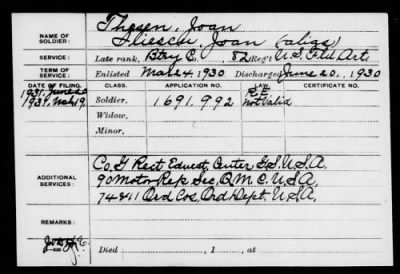 NAME OF SOLDIER: Thesen, Joan
Iliescu, Joan (alias)
SERVICE: Late rank, Btry C, 82 Reg't U.S. Fld Art.
TERM OF SERVICE: Enlisted Mar. 4, 1930 Discharged June 20, 1930
DATE OF FILING. CLASS. APPLICATION NO. LAW. CERTIFICATE NO.
1931, June 20 Soldier, 1,691,992 S.E.
1931, Not Valid
Widow,
Minor,
ADDITIONAL SERVICES: Co. G Rect Educat. Center G.S. U.S.A.
90 Motor Rep Sec. Q.M.C. U.S.A.
74 & 811 Ord Cos, Ord Dept. U.S.A.
REMARKS:
Died , 1 , at